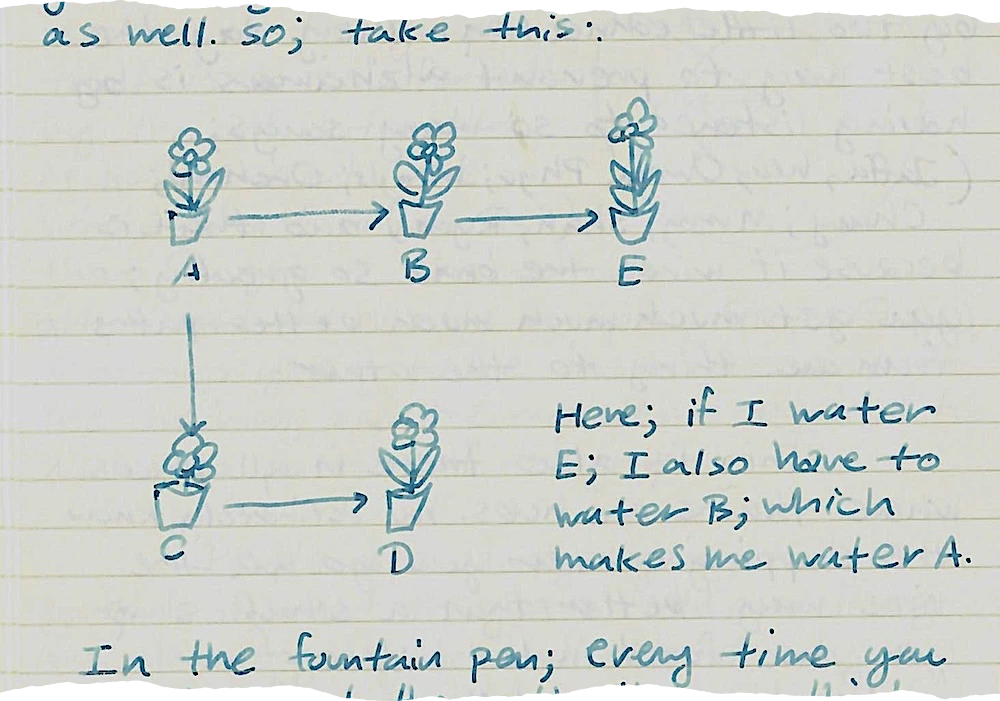 as well. so; take this:
A
B
E
C
D
Here; if I water
E; I also have to
water B; which
makes me water A.
In the fountain pen; every time you